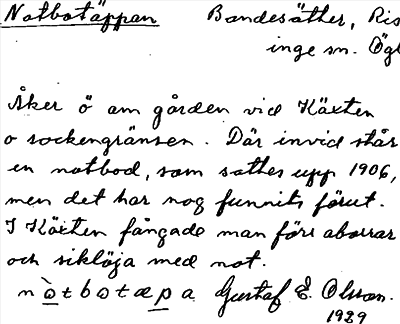 Notbotäppan Bandesäther, Ris
inge sn. Ögl
Åker ö om gården vid Käxten
o sockengränsen. Där invid står
en notbod, som sattes upp 1906,
men det har nog funnits förut.
I Käxten fångade man förr aborrar
och siklöja med not.
nòtbotæpa Gustaf E. Olsson.
1929